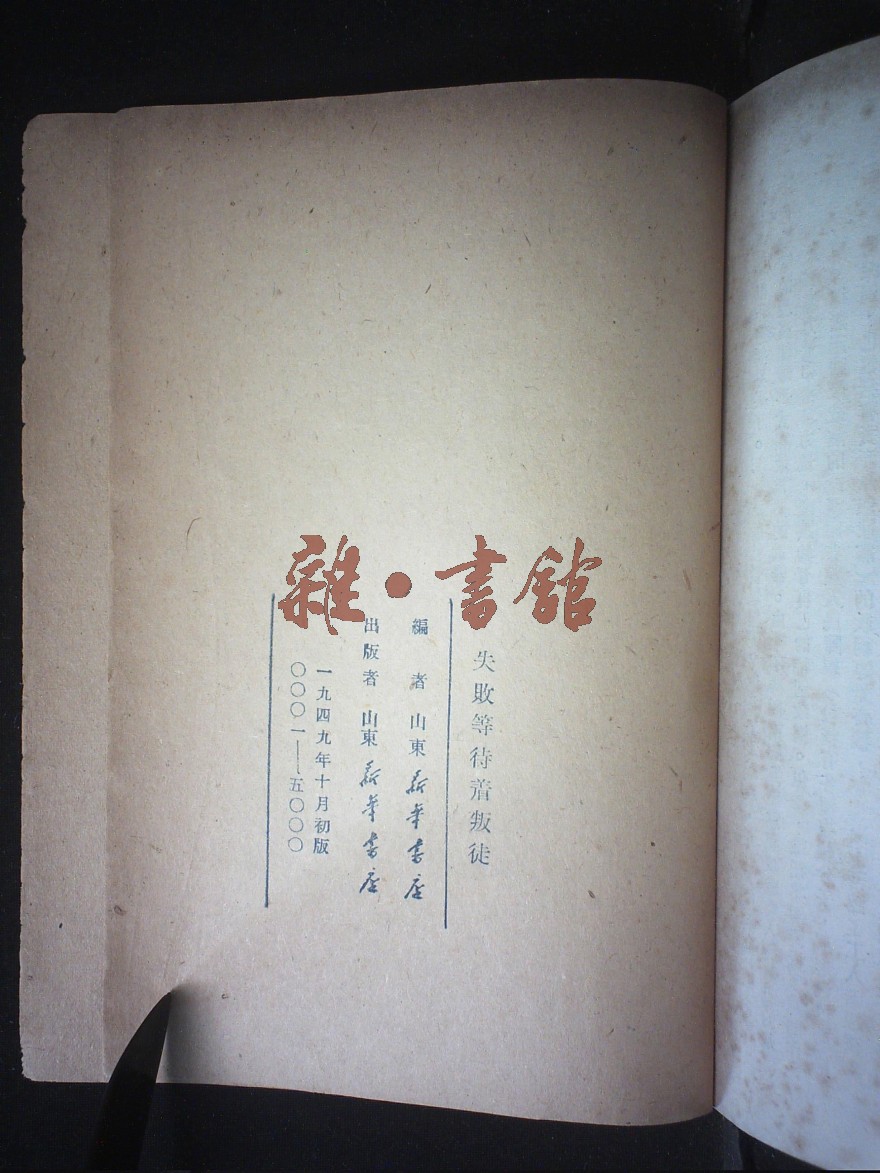 雜·書館
失敗等待着叛徒
編者 山東新華書店
出版者 山東新華書店
一九四九年十月初版
〇〇〇一——五〇〇〇